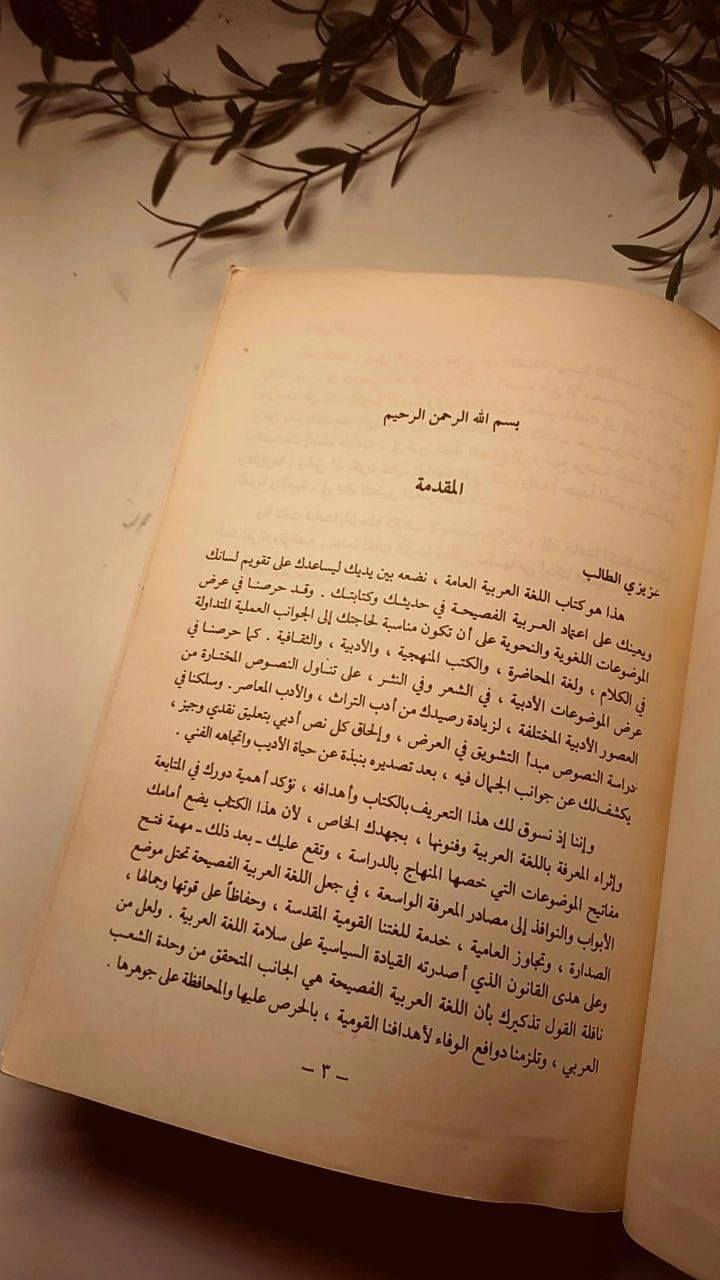 بسم الله الرحمن الرحيم
المقدمة
عزيزي الطالب
هذا هو كتاب اللغة العربية العامة ، نضعه بين يديك ليساعدك على تقويم لسانك
ويعينك على اعتماد العربية الفصيحة في حديثك وكتابتك . وقد حرصنا في عرض
الموضوعات اللغوية والنحوية على أن تكون مناسبة لحاجتك إلى الجوانب العملية المتداولة
في الكلام ، ولغة المحاضرة ، والكتب المنهجية ، والأدبية ، والثقافية . كما حرصنا في
عرض الموضوعات الأدبية ، في الشعر وفي النثر ، على تناول النصوص المختارة من
العصور الأدبية المختلفة ، لزيادة رصيدك من أدب التراث ، والأدب المعاصر . وسلكنا في
دراسة النصوص مبدأ التشويق في العرض ، وإلحاق كل نص أدبي بتعليق نقدي وجيز ،
يكشف لك عن جوانب الجمال فيه ، بعد تصديره بنبذة عن حياة الأديب واتجاهه الفني .
وإننا إذ نسوق لك هذا التعريف بالكتاب وأهدافه ، نؤكد أهمية دورك في المتابعة
وإثراء المعرفة باللغة العربية وفنونها ، بجهدك الخاص ، لأن هذا الكتاب يضع أمامك
مفاتيح الموضوعات التي خصها المنهاج بالدراسة ، وتقع عليك ـ بعد ذلك ـ مهمة فتح
الأبواب والنوافذ إلى مصادر المعرفة الواسعة ، في جعل اللغة العربية الفصيحة تحتل موضع
الصدارة ، وتجاوز العامية ، خدمة للغتنا القومية المقدسة ، وحفاظاً على قوتها وجمالها ،
وعلى هدى القانون الذي أصدرته القيادة السياسية على سلامة اللغة العربية . ولعل من
نافلة القول تذكيرك بأن اللغة العربية الفصيحة هي الجانب المتحقق من وحدة الشعب
العربي ، وتلزمنا دوافع الوفاء لأهدافنا القومية ، بالحرص عليها والمحافظة على جوهرها .
– ٣ –